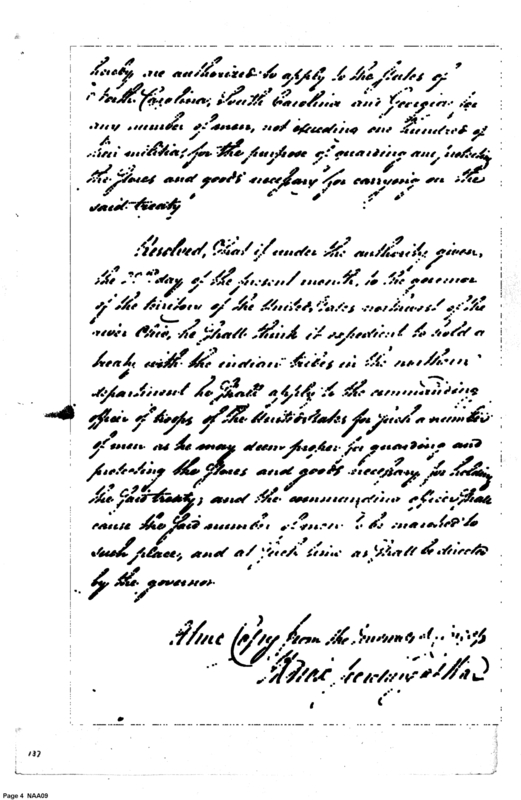 hereby are authorized to apply to the States of
North Carolina, South Carolina and Georgia, for
any number of men, not exceeding one hundred of
their militia, for the purpose of guarding and protecting
the stores and goods necessary for carrying on the
said treaty
Resolved, That if under the authority given,
the day of the present month, to the governor
of the territory of the United States northwest of the
river Ohio, he shall think it expedient to hold a
treaty with the indian tribes in the northern
department he shall apply to the commanding
officer of troops of the United States for such a number
of men as he may deem proper for guarding and
protecting the stores and goods necessary for holding
the said treaty; and the commanding officer shall
cause the said number of men to be marched to
such place, and at such time as shall be directed
by the governor
A true Copy from the Journals of Congress
H Knox Secretary at War
137
Page 4 NAA09